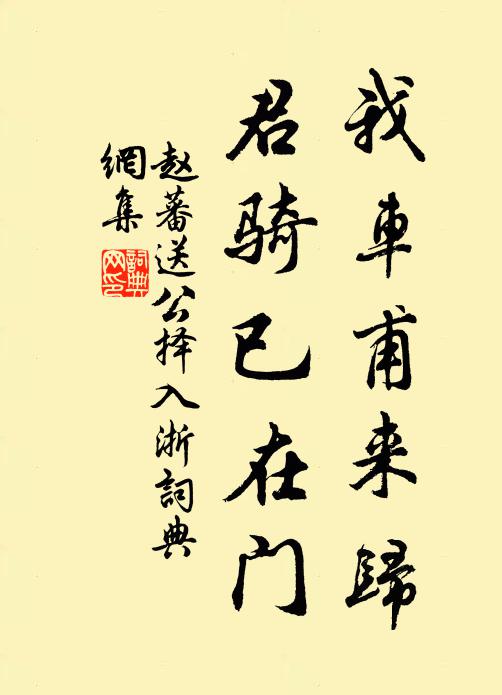 我车甫来歸
君骑已在门
赵蕃送公择入浙詞典
網集
詞典
网印